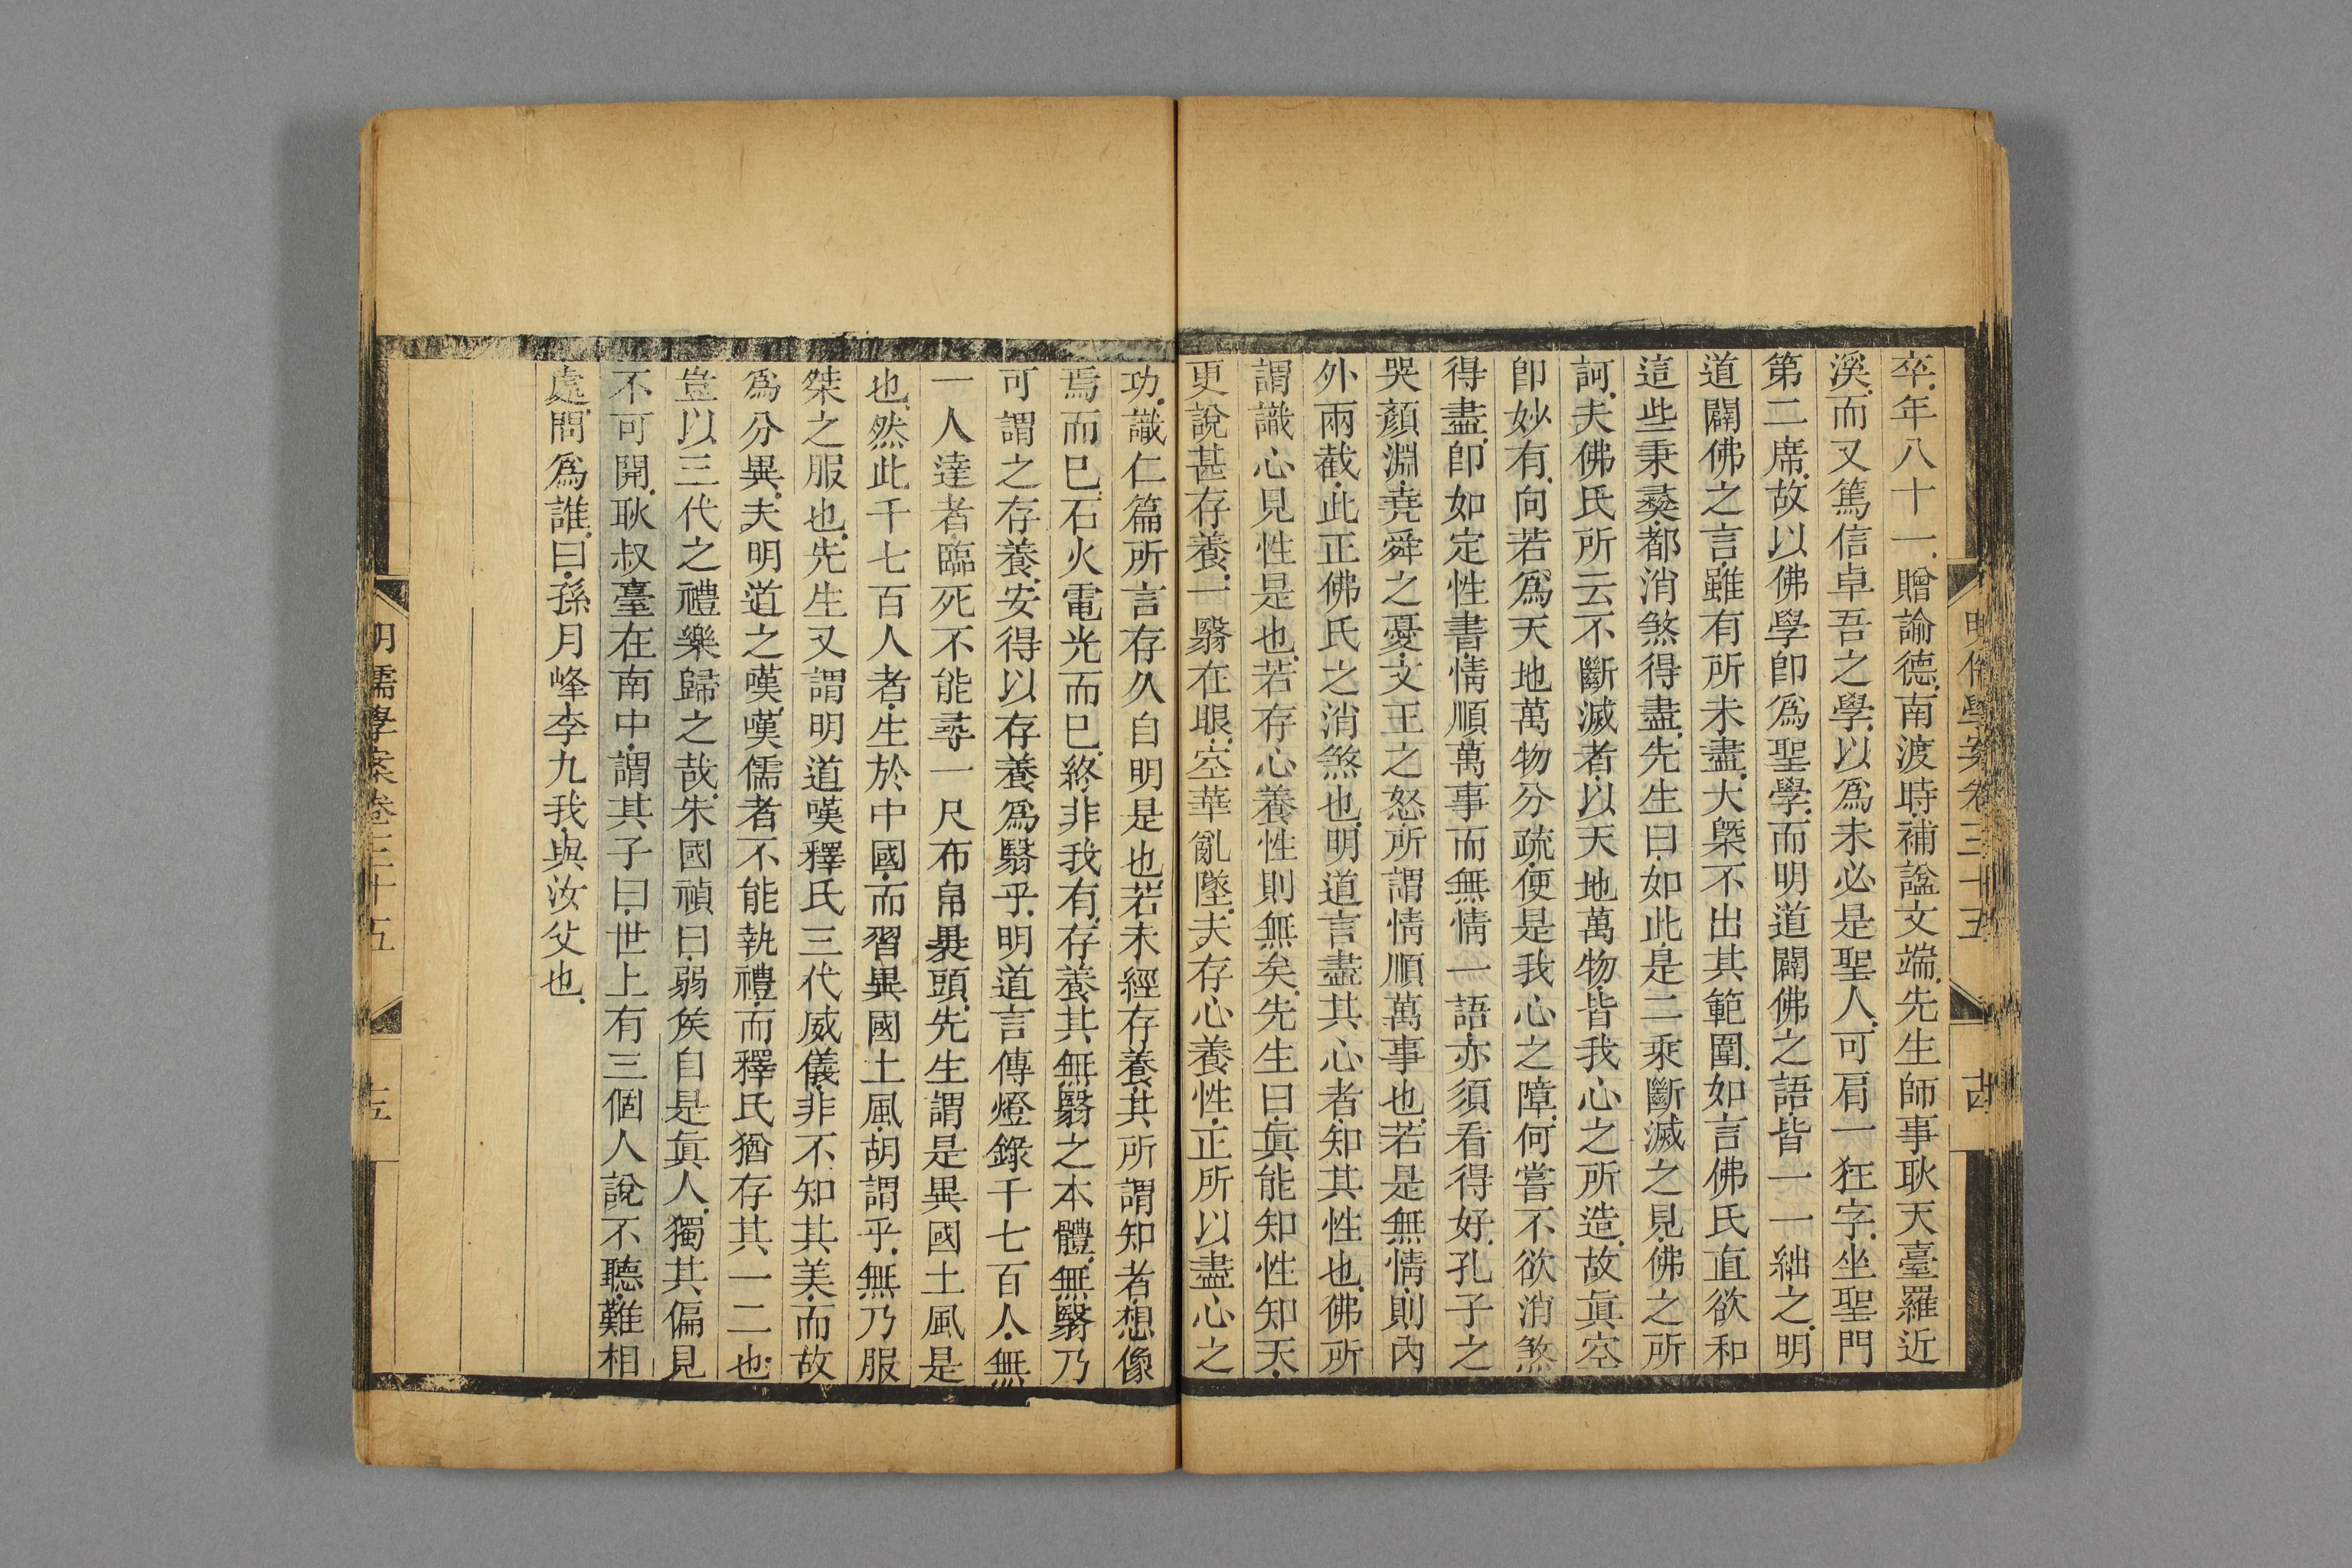 明儒學案卷三十五
古
卒年八十一贈諭德南渡時補諡文端先生師事耿天臺羅近
溪而又篤信卓吾之學以爲未必是聖人可肩一狂字坐聖門
第二席故以佛學卽爲聖學而明道闢佛之語皆一一絀之明
道闢佛之言雖有所未盡大槩不出其範圍如言佛氏直欲和
這些秉彜都消煞得盡先生曰如此是二乘斷滅之見佛之所
訶夫佛氏所云不斷滅者以天地萬物皆我心之所造故眞空
卽妙有向若爲天地萬物分疏便是我心之障何嘗不欲消煞
得盡卽如定性書情順萬事而無情一語亦須看得好孔子之
哭顏淵堯舜之憂文王之怒所謂情順萬事也若是無情則內
外兩截此正佛氏之消煞也明道言盡其心者知其性也佛所
謂識心見性是也若存心養性則無矣先生曰眞能知性知天
更說甚存養一翳在眼空華亂墜夫存心養性正所以盡心之
功識仁篇所言存久自明是也若未經存養其所謂知者想像
焉而已石火電光而已終非我有存養其無翳之本體無翳乃
可謂之存養安得以存養爲翳乎明道言傳燈錄千七百人無
一人達者臨死不能尋一尺布帛裹頭先生謂是異國土風是
也然此千七百人者生於中國而習異國土風胡謂乎無乃服
桀之服也先生又謂明道嘆釋氏三代威儀非不知其美而故
爲分異夫明道之嘆嘆儒者不能執禮而釋氏猶存其一二也
豈以三代之禮樂歸之哉朱國禎曰弱侯自是眞人獨其偏見
不可開耿叔臺在南中謂其子曰世上有三個人說不聽難相
處問爲誰曰孫月峰李九我與汝父也
明儒學案卷三十五